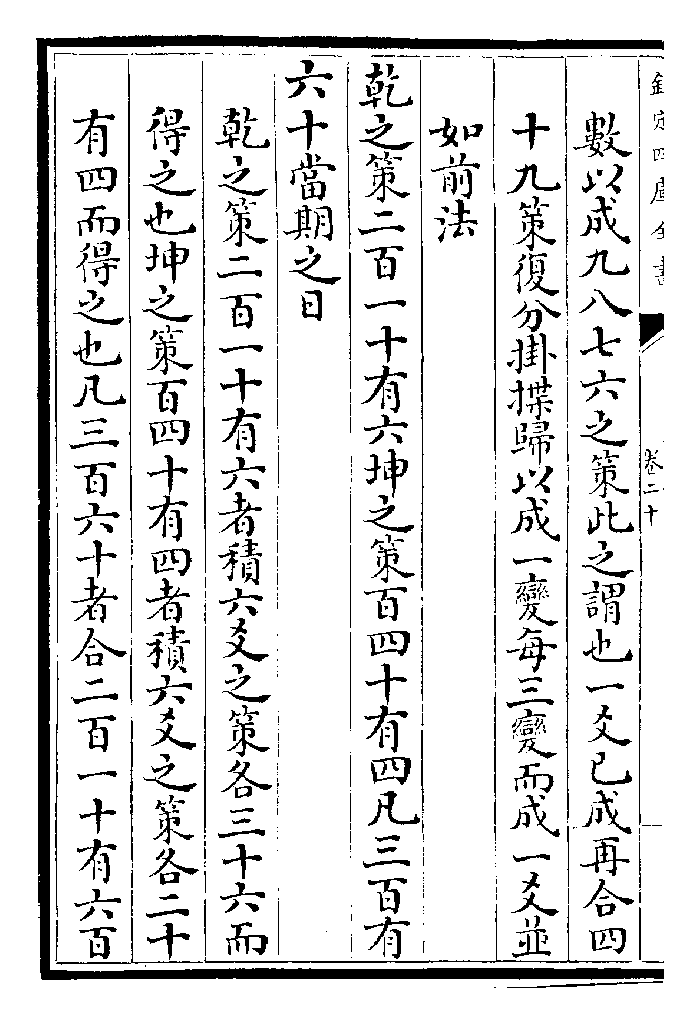 欽定四庫全書
卷二十
數以成九八七六之策此之謂也一爻已成再合四
十九策復分掛揲歸以成一變每三變而成一爻並
如前法
乾之策二百一十有六坤之策百四十有四凡三百有
六十當期之日
乾之策二百一十有六者積六爻之策各三十六而
得之也坤之策百四十有四者積六爻之策各二十
有四而得之也凡三百六十者合二百一十有六百